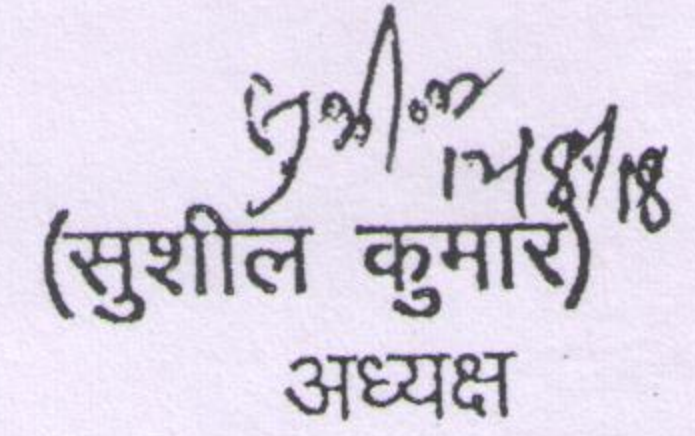 (सुशील कुमार)
अध्यक्ष